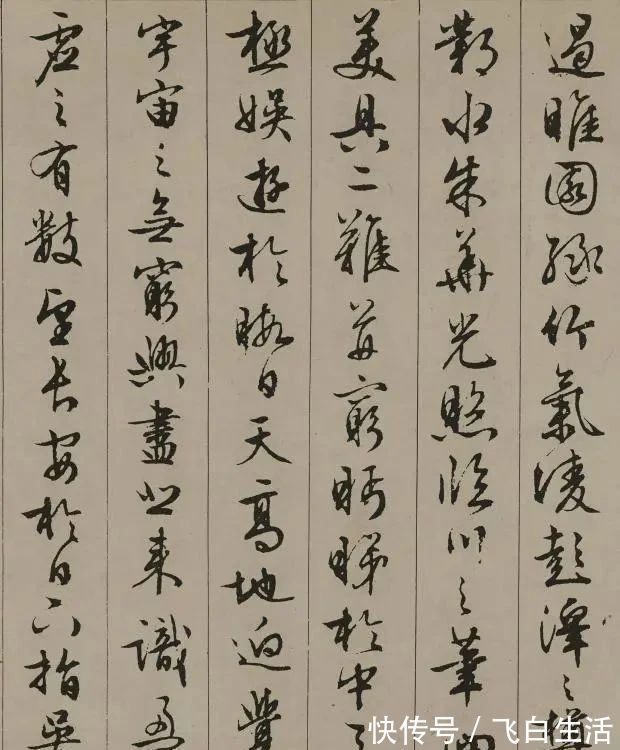 遏睢園緑竹氣凌彭澤之樽
鄴水朱華光照臨川之筆
美具二難并窮眄睇於中
極娛遊於暇日天高地迥覺
宇宙之無窮興盡悲來識盈
虛之有數望長安於日下指吳
快传号／飞白生活